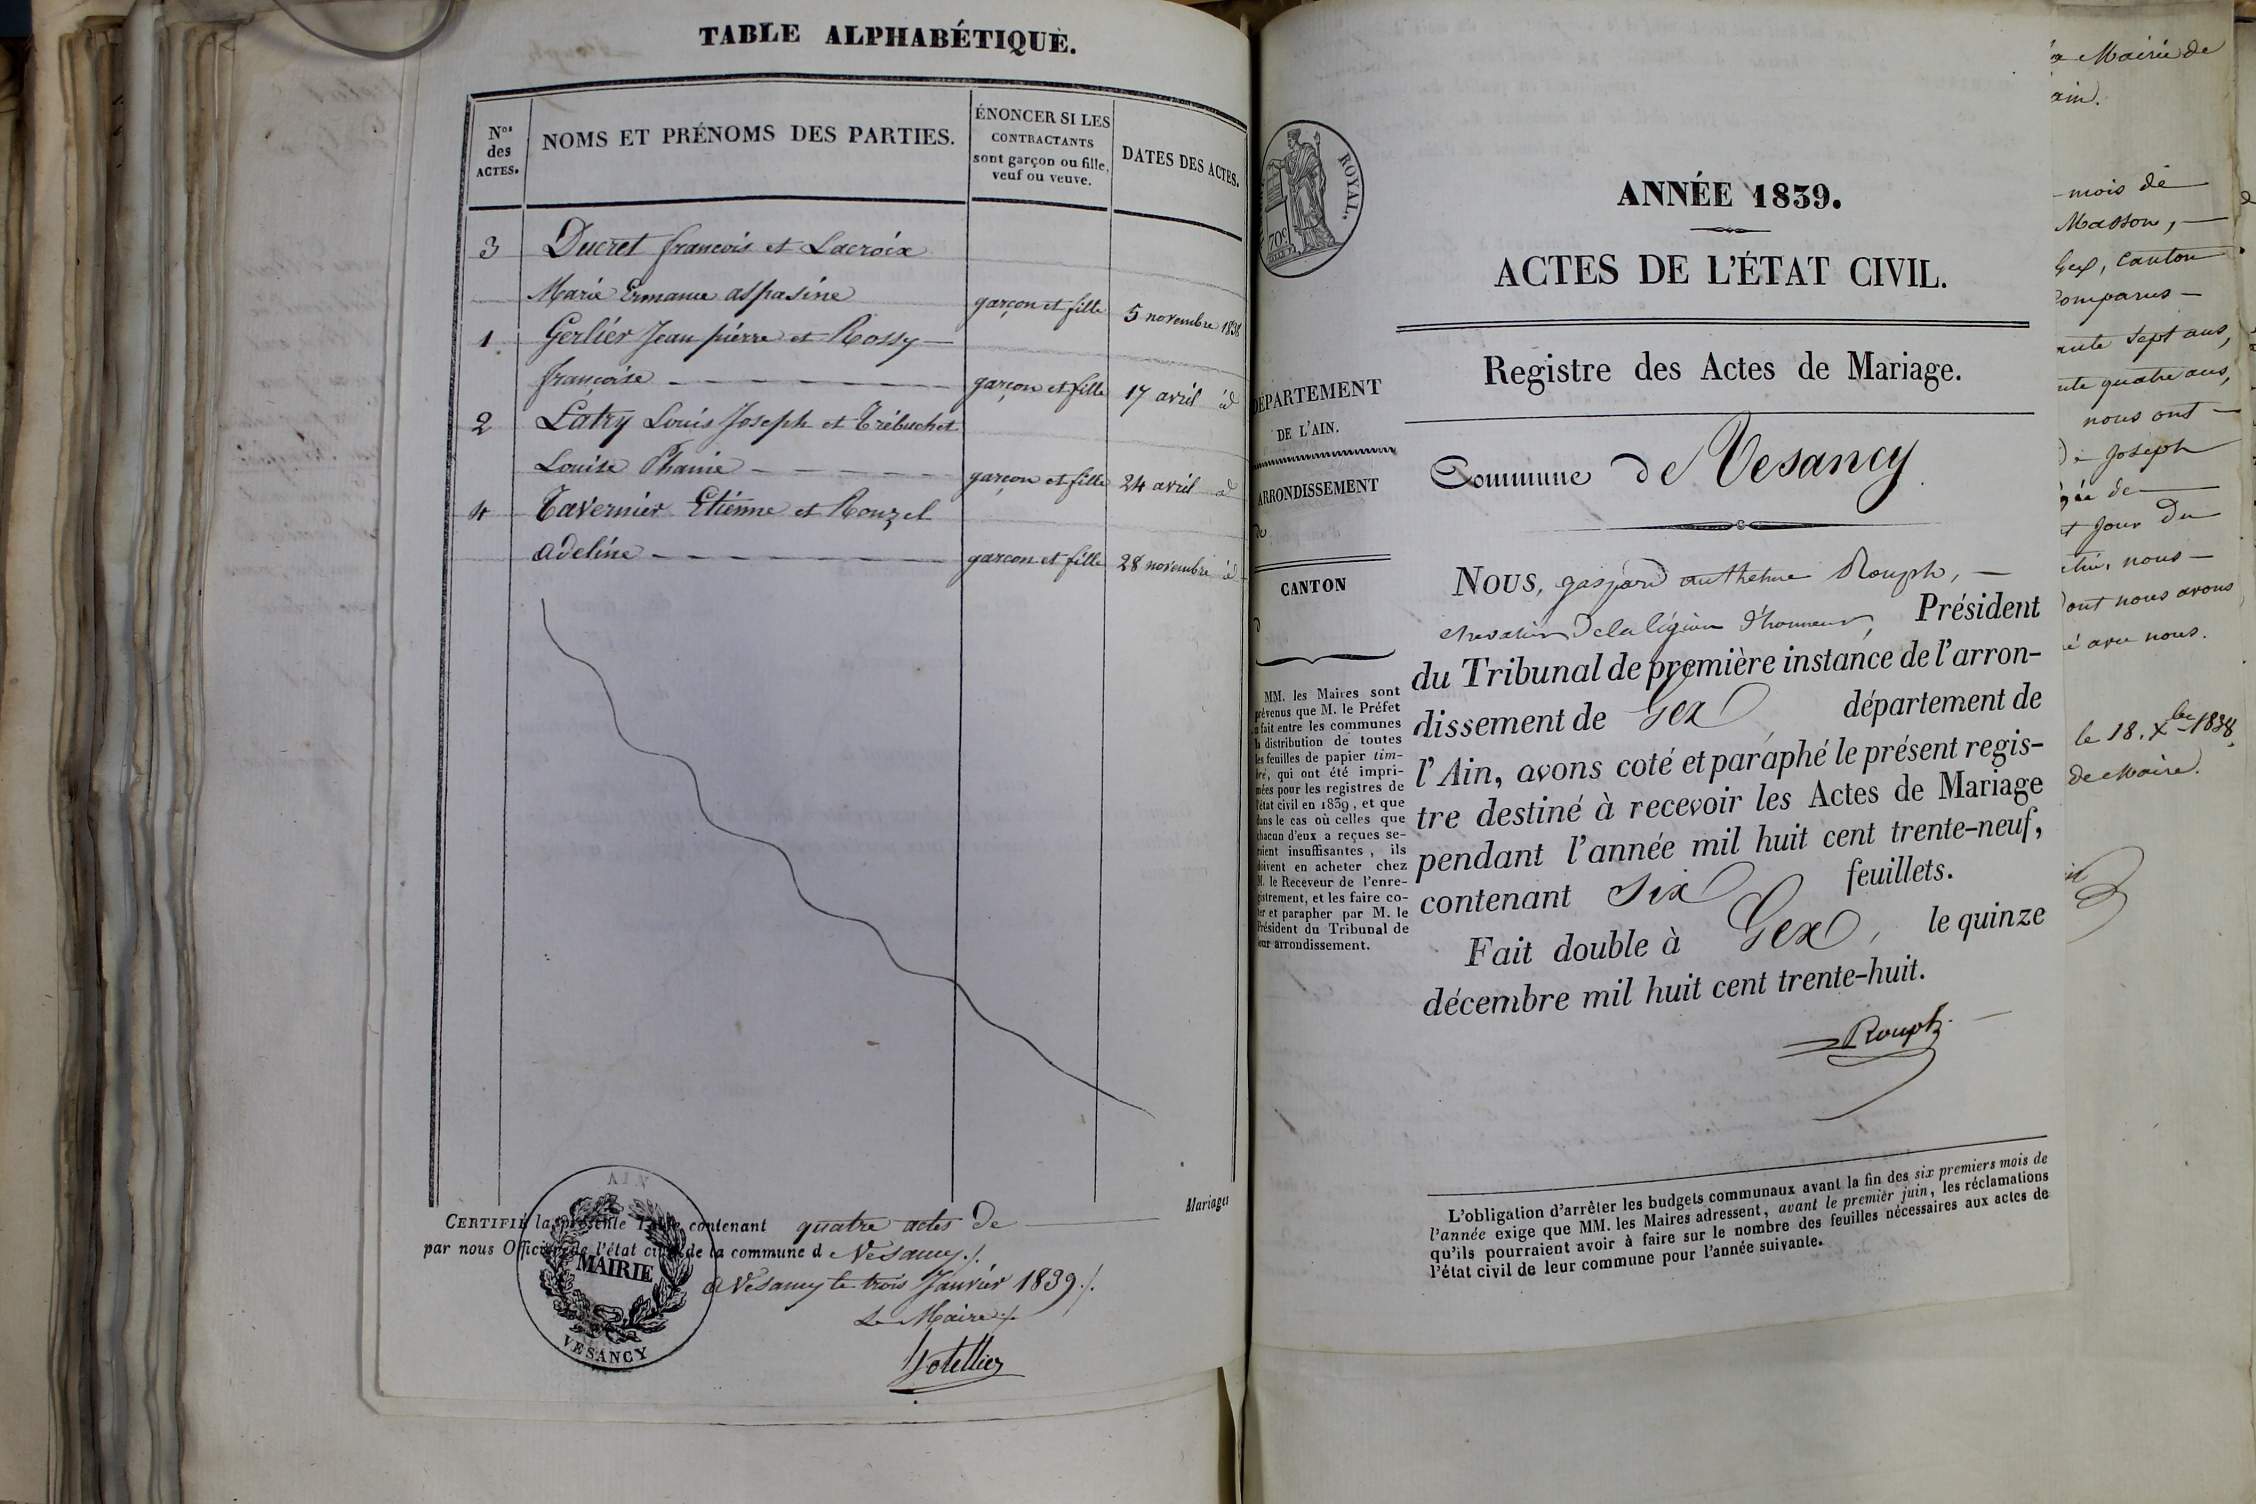 TABLE ALPHABÉTIQUE.
Nos des ACTES.
NOMS ET PRÉNOMS DES PARTIES.
ÉNONCER SI LES
CONTRACTANTS
sont garçon ou fille,
veuf ou veuve.
DATES DES ACTES.
3 Ducret francois et Lacroix
Marie Ermance aspasine garçon et fille 5 novembre 1838
1 Gerlier Jean pierre et Rossy
françoise garçon et fille 17 avril id
2 Latry Louis Joseph et Trébuchet
Louise Phanie garçon et fille 24 avril id
4 Tavernier Etienne et Rouzel
adeline garcon et fille 28 novembre id
Mariages
CERTIFIÉ la présente Table contenant quatre actes de
par nous Officier de l'état civil de la commune d Vesancy
a Vesancy le trois Janvier 1839
Le Maire
AIN
MAIRIE
VESANCY
ROYAL.
70c
DÉPARTEMENT
DE L'AIN.
ARRONDISSEMENT
de
CANTON
d
MM. les Maires sont
prévenus que M. le Préfet
a fait entre les communes
la distribution de toutes
les feuilles de papier tim-
bré, qui ont été impri-
mées pour les registres de
l'état civil en 1839, et que
dans le cas où celles que
chacun d'eux a reçues se-
raient insuffisantes, ils
doivent en acheter chez
M. le Receveur de l'enre-
gistrement, et les faire co-
ter et parapher par M. le
Président du Tribunal de
leur arrondissement.
ANNÉE 1839.
ACTES DE L'ÉTAT CIVIL.
Registre des Actes de Mariage.
Commune de Vesancy
NOUS, gaspard anthelme Rouph,
chevalier de la légion d'honneur, Président
du Tribunal de première instance de l'arron-
dissement de Gex département de
l'Ain, avons coté et paraphé le présent regis-
tre destiné à recevoir les Actes de Mariage
pendant l'année mil huit cent trente-neuf,
contenant six feuillets.
Fait double à Gex, le quinze
décembre mil huit cent trente-huit.
Rouph
L'obligation d'arrêter les budgets communaux avant la fin des six premiers mois de
l'année exige que MM. les Maires adressent, avant le premier juin, les réclamations
qu'ils pourraient avoir à faire sur le nombre des feuilles nécessaires aux actes de
l'état civil de leur commune pour l'année suivante.
Mairie de
ain.
mois de
Masson,
Gex, Canton
Comparus
sept ans,
quatre ans,
nous ont
Joseph
de
Jour du
nous
dont nous avons
avec nous.
le 18 Xbre 1838